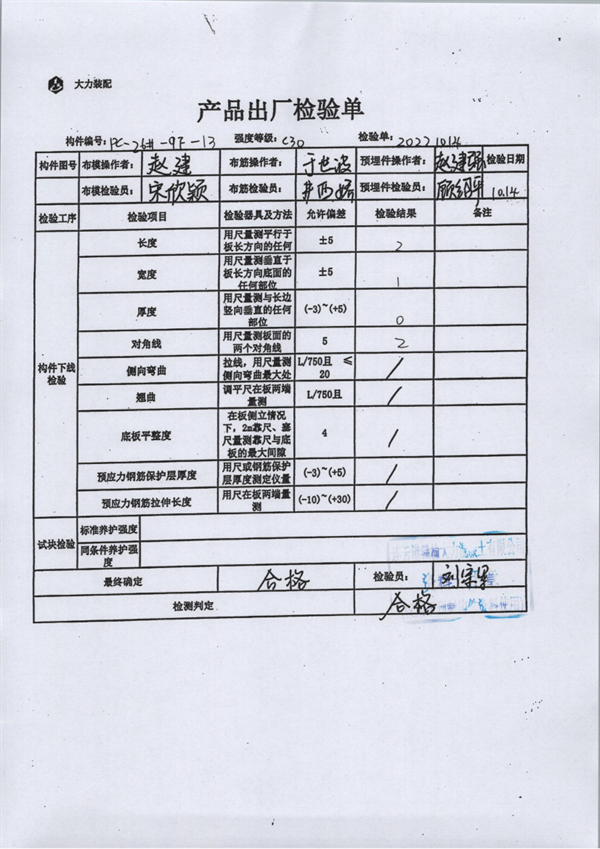 大力装配
产品出厂检验单
构件编号：PC-26#-9F-13 强度等级：C30 检验单：20221014
构件图号 布模操作者： 赵建 布筋操作者： 于世波 预埋件操作者： 赵建强 检验日期
布模检验员： 宋欣颖 布筋检验员： 预埋件检验员： 10.14
检验工序 检验项目 检验器具及方法 允许偏差 检验结果 备注
构件下线检验
长度 用尺量测平行于板长方向的任何 ±5 2
宽度 用尺量测垂直于板长方向底面的任何部位 ±5 1
厚度 用尺量测与长边竖向垂直的任何部位 (-3)~(+5) 0
对角线 用尺量测板面的两个对角线 5 2
侧向弯曲 拉线，用尺量测侧向弯曲最大处 L/750且 ≤20 /
翘曲 调平尺在板两端量测 L/750且 /
底板平整度 在板侧立情况下，2m靠尺、塞尺量测靠尺与底板的最大间隙 4 /
预应力钢筋保护层厚度 用尺或钢筋保护层厚度测定仪量 (-3)~(+5) /
预应力钢筋拉伸长度 用尺在板两端量测 (-10)~(+30) /
试块检验 标准养护强度
同条件养护强度
最终确定 合格 检验员：
检测判定 合格